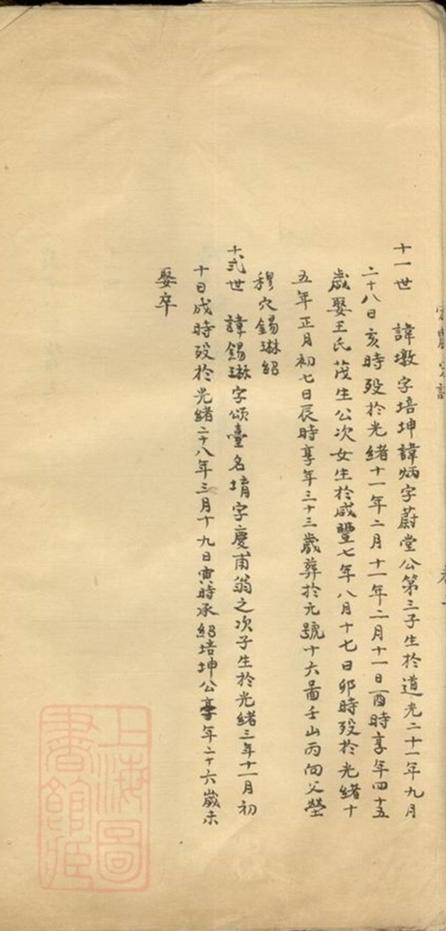 十一世　諱墩字培坤諱炳字蔚堂公第三子生於道光二十一年九月
二十八日亥時歿於光緒十一年二月十一年二月十一日酉時享年四十五
歲娶王氏茂生公次女生於咸豐七年八月十七日卯時歿於光緒十
五年正月初七日辰時享年三十三歲葬於元號十六啚壬山丙向父塋
穆穴錫琳紹
十弍世　諱錫琳字頌臺名堉字慶甫翁之次子生於光緒三年十一月初
十日戌時歿於光緒二十八年三月十九日寅時承紹培坤公享年二十六歲未
娶卒
上海圖
書館藏